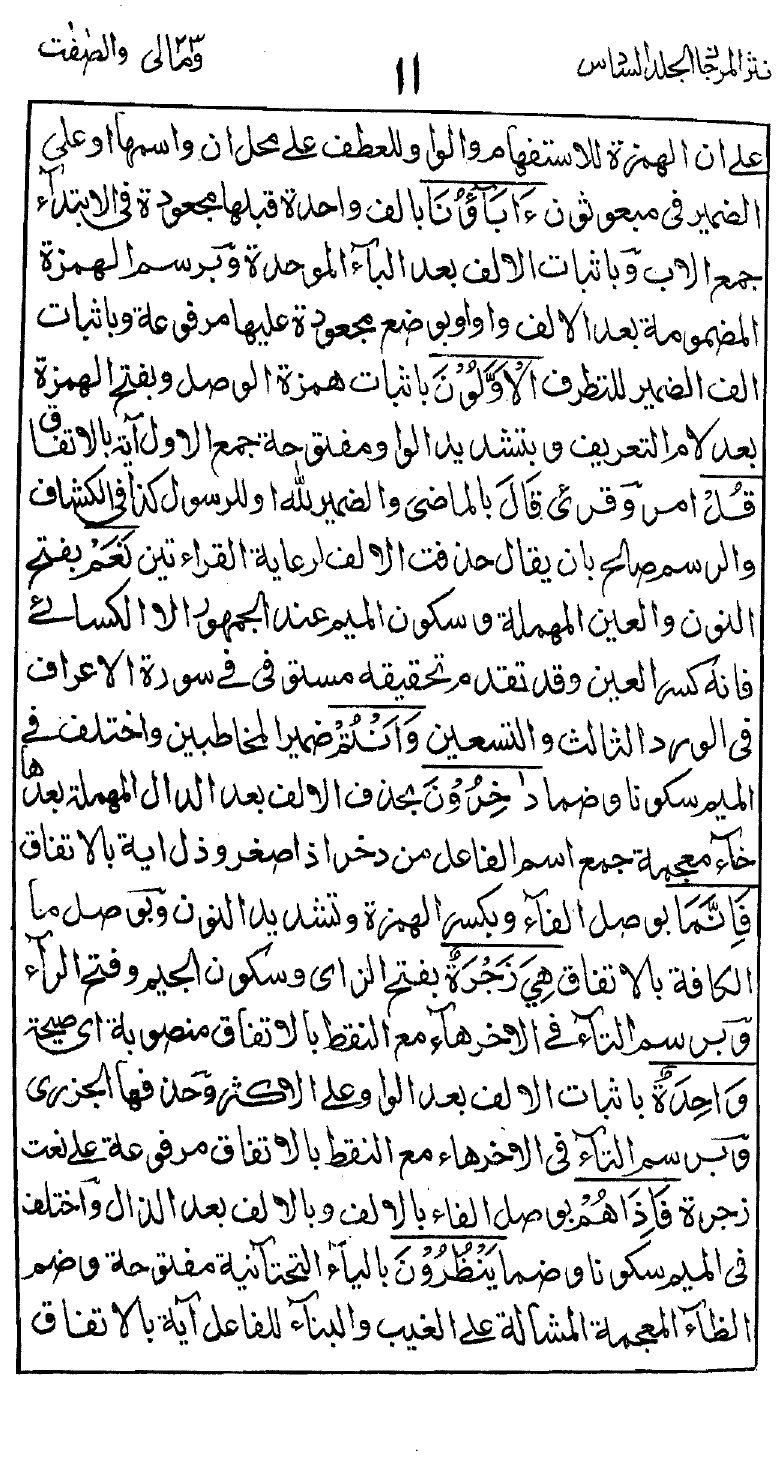 نثر المرجان المجلد السادس
١١
ومالى ٢٣ والصفت
على ان الهمزة للاستفهام والواو للعطف على محل ان واسمها او على
الضمير فى مبعوثون ءَابَآؤُنَا بالف واحدة قبلها مجعودة فى الابتدآء
جمع الاب وَباثبات الالف بعد البآء الموحدة وَبرسم الهمزة
المضمومة بعد الالف واوا وبوضع مجعودة عليها مرفوعة وباثبات
الف الضمير للتطرف الْاَوَّلُوْنَ باثبات همزة الوصل وبفتح الهمزة
بعد لام التعريف وبتشديد الواو مفتوحة جمع الاول آية بالاتفاق
قُلْ امر وَقرئ قَالَ بالماضى والضمير لله او للرسول كذا فى الكشاف
والرسم صالح بان يقال حذفت الالف لرعاية القراءتين نَعَمْ بفتح
النون والعين المهملة وسكون الميم عند الجمهور الا الكسائے
فانه كسر العين وقد تقدم تحقيقه مستوفى فے سورة الاعراف
فى الورد الثالث والتسعين وَاَنْتُمْ ضمير المخاطبين واختلف فے
الميم سكونا وضما دٰخِرُوْنَ بحذف الالف بعد الدال المهملة بعدها
خآء معجمة جمع اسم الفاعل من دخر اذا صغر وذل اية بالاتفاق
فَاِنَّمَا بوصل الفآء وبكسر الهمزة وتشديد النون وَبوصل ما
الكافة بالاتفاق هِيَ زَجْرَةٌ بفتح الزاى وسكون الجيم وفتح الرآء
وَبرسم التآء فے الاخر هاء مع النقط بالاتفاق منصوبة اى صيحة
وَاحِدَةٌ باثبات الالف بعد الواو على الاكثر وَحذفها الجزرى
وَبرسم التآء فى الاخر هاء مع النقط بالاتفاق مرفوعة على نعت
زجرة فَاِذَا هُمْ بوصل الفاء بالالف وبالالف بعد الذال وَاختلف
فى الميم سكونا وضما يَنْظُرُوْنَ بالياء التحتانية مفتوحة وضم
الظآء المعجمة المشالة على الغيب والبنآء للفاعل آية بالاتفاق